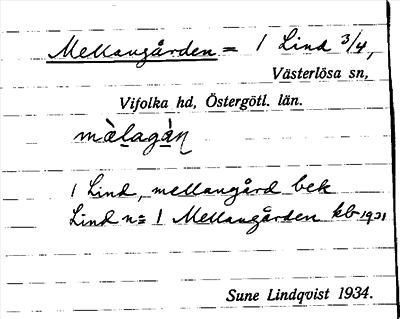 Mellangården = 1 Lind 3/4,
Västerlösa sn,
Vifolka hd, Östergötl. län.
mèlagàɳ
1 Lind, mellangård bek
Lind n:= 1 Mellangården kb 1921
Sune Lindqvist 1934.